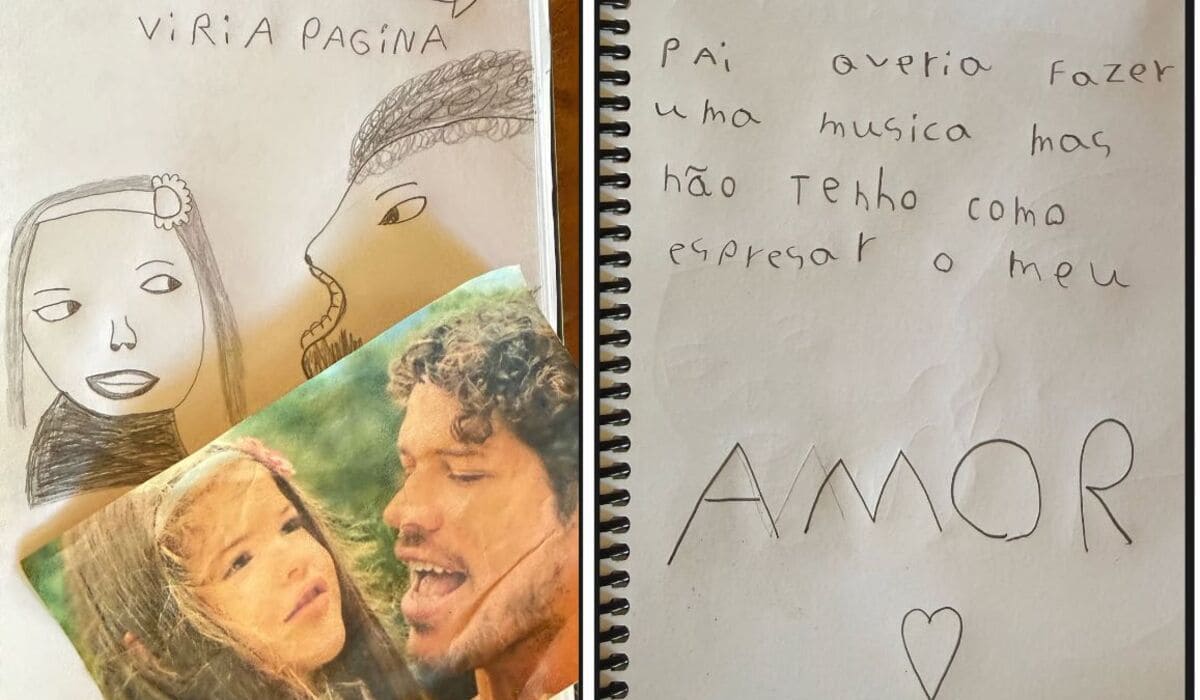 VIRIA PAGINA
PAi averia Fazer
uma musica mas
não Tenho como
espresar o meu
AMOR